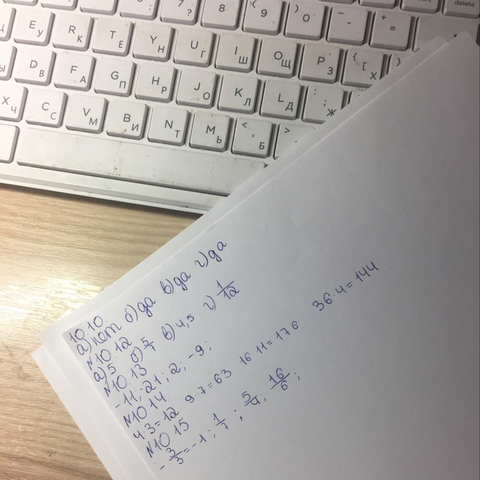 delete
E У R К T Е Y Н U Г I Ш O Щ P З { [ Х
D В F А G П H Р J О K Л L Д : ; Ж
X Ч C С V М B И N Т M Ь < , Б >
10.10.
а) нет б) да в) да г) да
№10.12
а) 5 б) 5/7 в) 4,5 г) 1/12
№10.13
-11; -21; 2; -9;
№10.14
4·3=12 9·7=63 16·11=176 36·4=144
№10.15
-3/3=-1; 1/7; 5/4; 16/6;